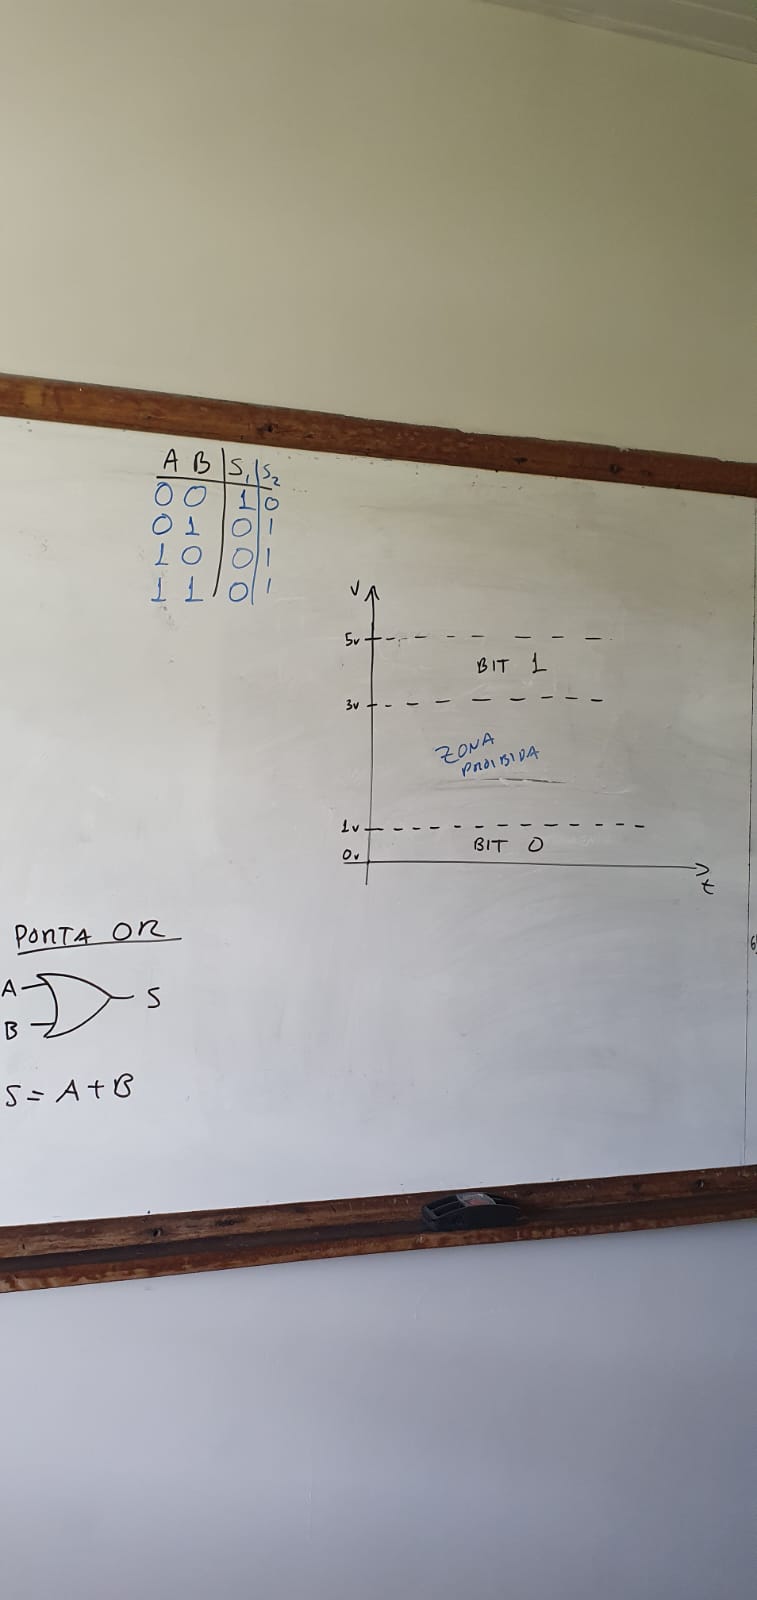 A B S₁ S₂
0 0 1 0
0 1 0 1
1 0 0 1
1 1 0 1
V
5v
BIT 1
3v
ZONA
PROIBIDA
1v
BIT 0
0v
t
PORTA OR
A
S
B
S = A + B